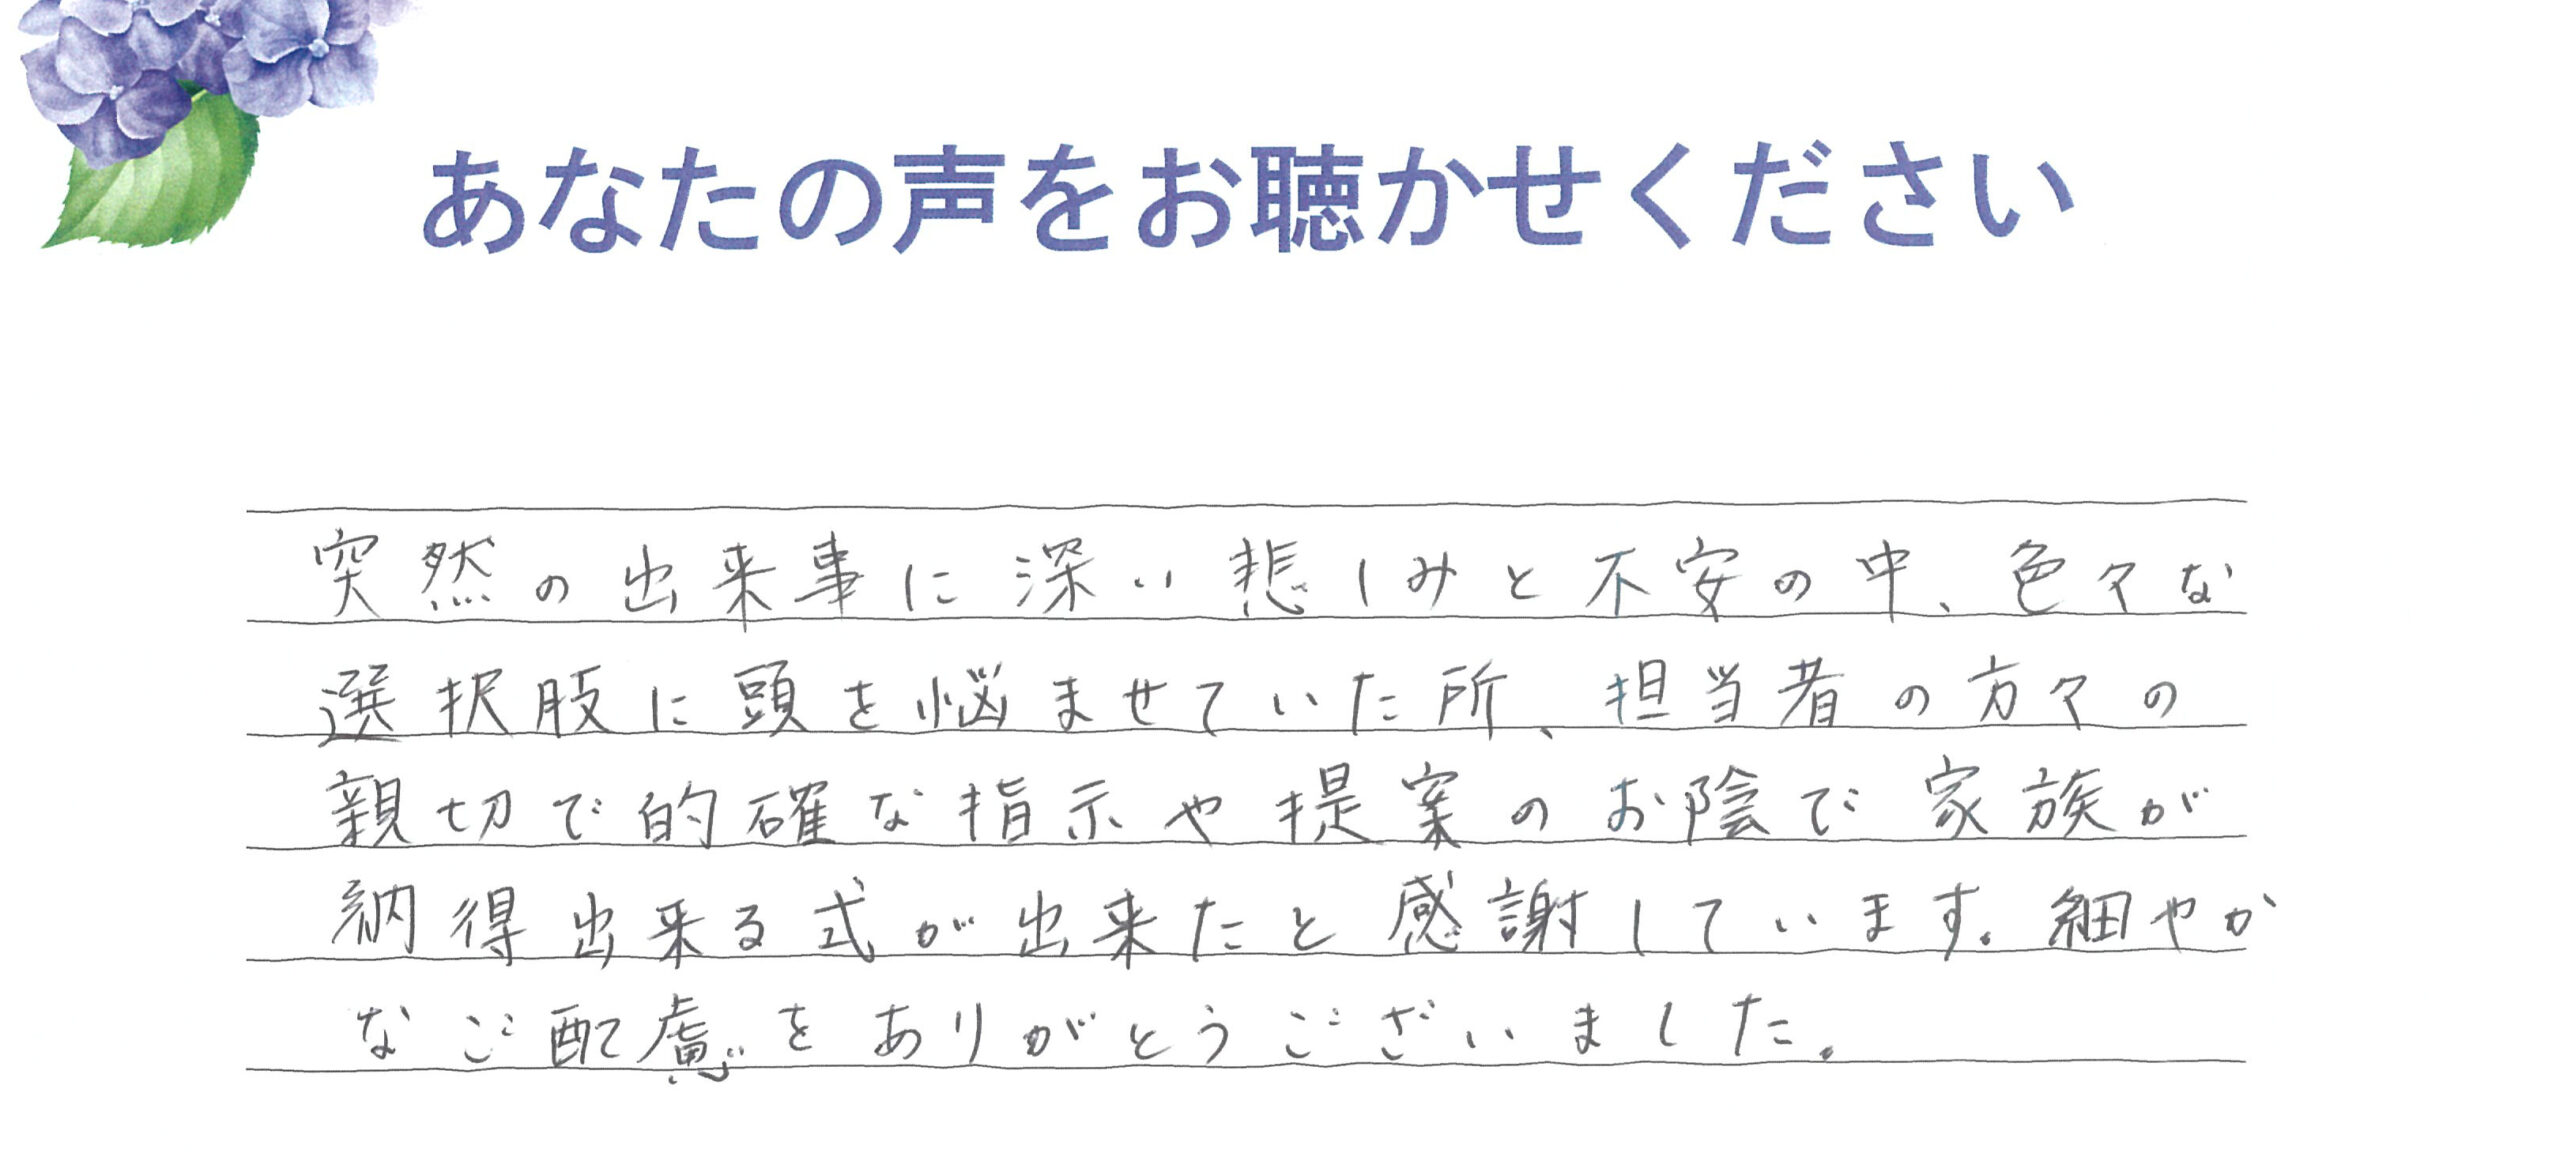 あなたの声をお聴かせください
突然の出来事に深い悲しみと不安の中、色々な
選択肢に頭を悩ませていた所、担当者の方々の
親切で的確な指示や提案のお陰で家族が
納得出来る式が出来たと感謝しています。細やか
なご配慮をありがとうございました。